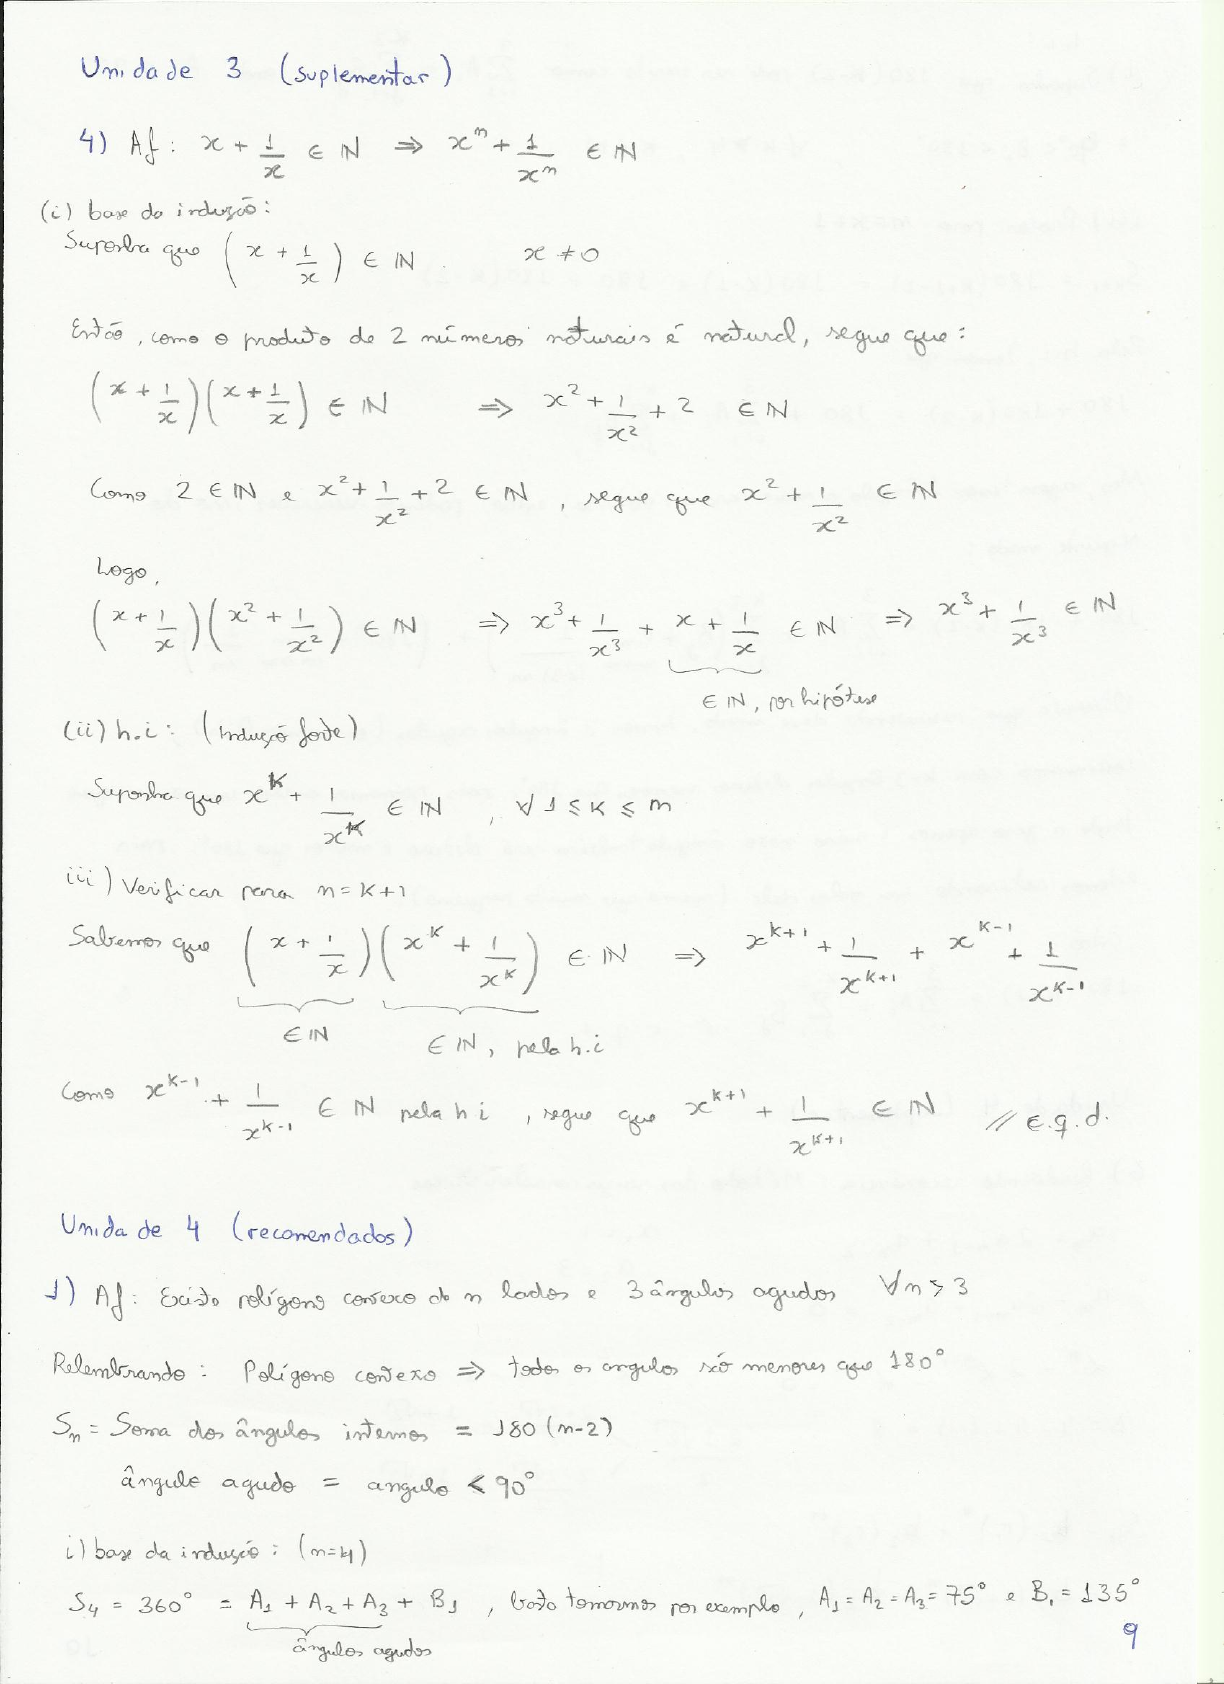 Unidade 3 (suplementar)
4) Af: x + 1/x ∈ ℕ ⇒ xⁿ + 1/xⁿ ∈ ℕ
(i) base da indução:
Suponha que (x + 1/x) ∈ ℕ. x ≠ 0
Então, como o produto de 2 números naturais é natural, segue que:
(x + 1/x)(x + 1/x) ∈ ℕ ⇒ x² + 1/x² + 2 ∈ ℕ
Como 2 ∈ ℕ e x² + 1/x² + 2 ∈ ℕ, segue que x² + 1/x² ∈ ℕ
Logo,
(x + 1/x)(x² + 1/x²) ∈ ℕ ⇒ x³ + 1/x³ + x + 1/x ∈ ℕ ⇒ x³ + 1/x³ ∈ ℕ
∈ ℕ, por hipótese
(ii) h.i: (indução forte)
Suponha que xᵏ + 1/xᵏ ∈ ℕ, ∀ 1 ≤ k ≤ m
iii) Verificar para n = k+1
Sabemos que (x + 1/x)(xᵏ + 1/xᵏ) ∈ ℕ ⇒ xᵏ⁺¹ + 1/xᵏ⁺¹ + xᵏ⁻¹ + 1/xᵏ⁻¹
∈ ℕ ∈ ℕ, pela h.i
Como xᵏ⁻¹ + 1/xᵏ⁻¹ ∈ ℕ pela h i, segue que xᵏ⁺¹ + 1/xᵏ⁺¹ ∈ ℕ // c.q.d.
Unidade 4 (recomendados)
1) Af: Existe polígono convexo de n lados e 3 ângulos agudos ∀n > 3
Relembrando: Polígono convexo ⇒ todos os angulos são menores que 180°
Sₙ = Soma dos ângulos internos = 180(n-2)
ângulo agudo = angulo < 90°
i) base da indução: (n=4)
S₄ = 360° = A₁ + A₂ + A₃ + B₁, basta tomarmos por exemplo, A₁ = A₂ = A₃ = 75° e B₁ = 135°
ângulos agudos
9